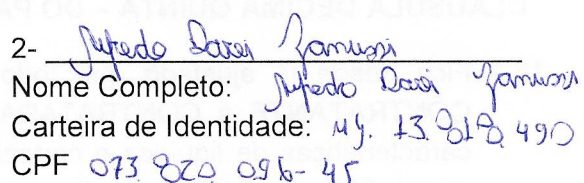 2- Alfredo Davi Zanussi
Nome Completo: Alfredo Davi Zanussi
Carteira de Identidade: MG. 13.818.490
CPF 073 820 096-45